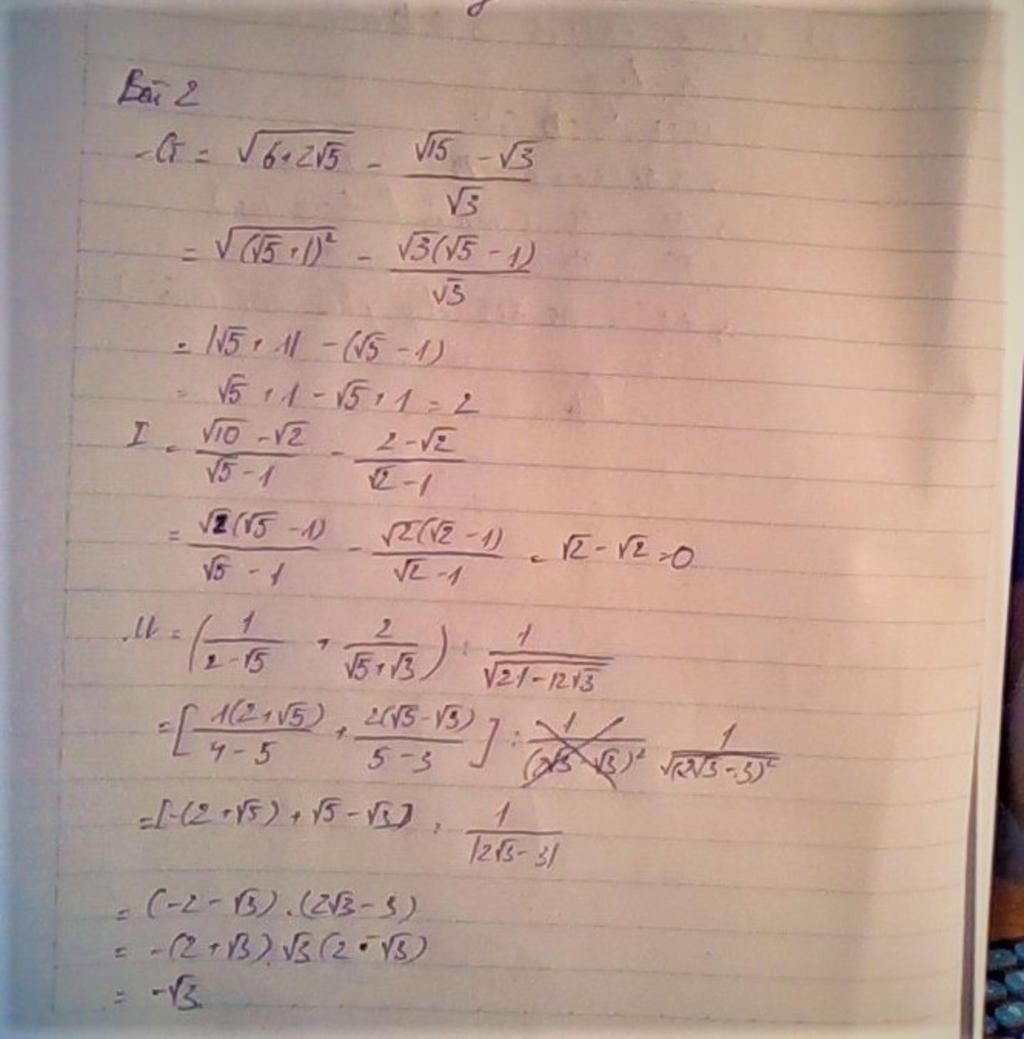 Bài 2
G = √(6+2√5) - (√15 - √3)/√3
= √((√5+1)²) - √3(√5 - 1)/√3
= |√5 + 1| - (√5 - 1)
= √5 + 1 - √5 + 1 = 2
I = (√10 - √2)/(√5 - 1) - (2 - √2)/(√2 - 1)
= √2(√5 - 1)/(√5 - 1) - √2(√2 - 1)/(√2 - 1) = √2 - √2 = 0
= (1/(2 - √5) + 2/(√5 + √3)) : 1/√(21 - 12√3)
= [1(2 + √5)/(4 - 5) + 2(√5 - √3)/(5 - 3)] : 1/√((2√3 - 3)²)
= [-(2 + √5) + √5 - √3] : 1/|2√3 - 3|
= (-2 - √3) . (2√3 - 3)
= -(2 + √3) . √3(2 - √3)
= -√3